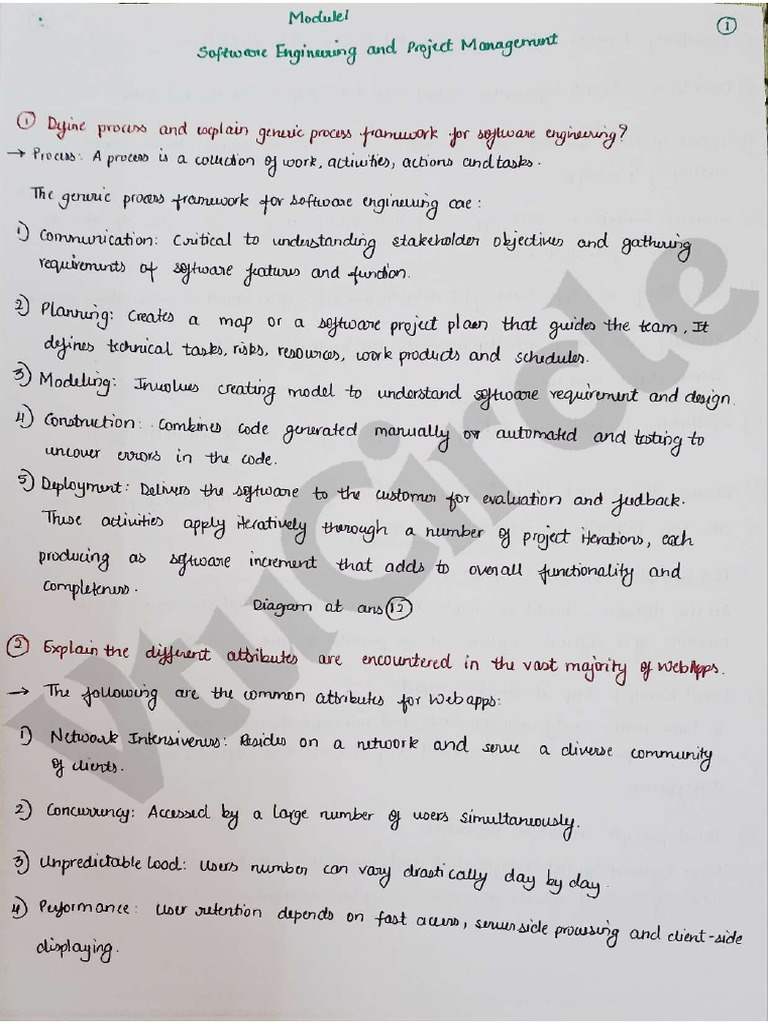 Module 1
①
Software Engineering and Project Management
① Define process and explain generic process framework for software engineering?
→ Process: A process is a collection of work, activities, actions and tasks.
The generic process framework for software engineering are:
1) Communication: Critical to understanding stakeholder objectives and gathering
requirements of software features and function.
2) Planning: Creates a map or a software project plan that guides the team. It
defines technical tasks, risks, resources, work products and schedules.
3) Modeling: Involves creating model to understand software requirement and design.
4) Construction: Combines code generated manually or automated and testing to
uncover errors in the code.
5) Deployment: Delivers the software to the customer for evaluation and feedback.
These activities apply iteratively through a number of project iterations, each
producing as software increment that adds to overall functionality and
completeness.
Diagram at ans ⑫
② Explain the different attributes are encountered in the vast majority of WebApps.
→ The following are the common attributes for Webapps:
1) Network Intensiveness: Resides on a network and serve a diverse community
of clients.
2) Concurrency: Accessed by a large number of users simultaneously.
3) Unpredictable load: Users number can vary drastically day by day.
4) Performance: User retention depends on fast access, server side processing and client-side
displaying.
VtuCircle